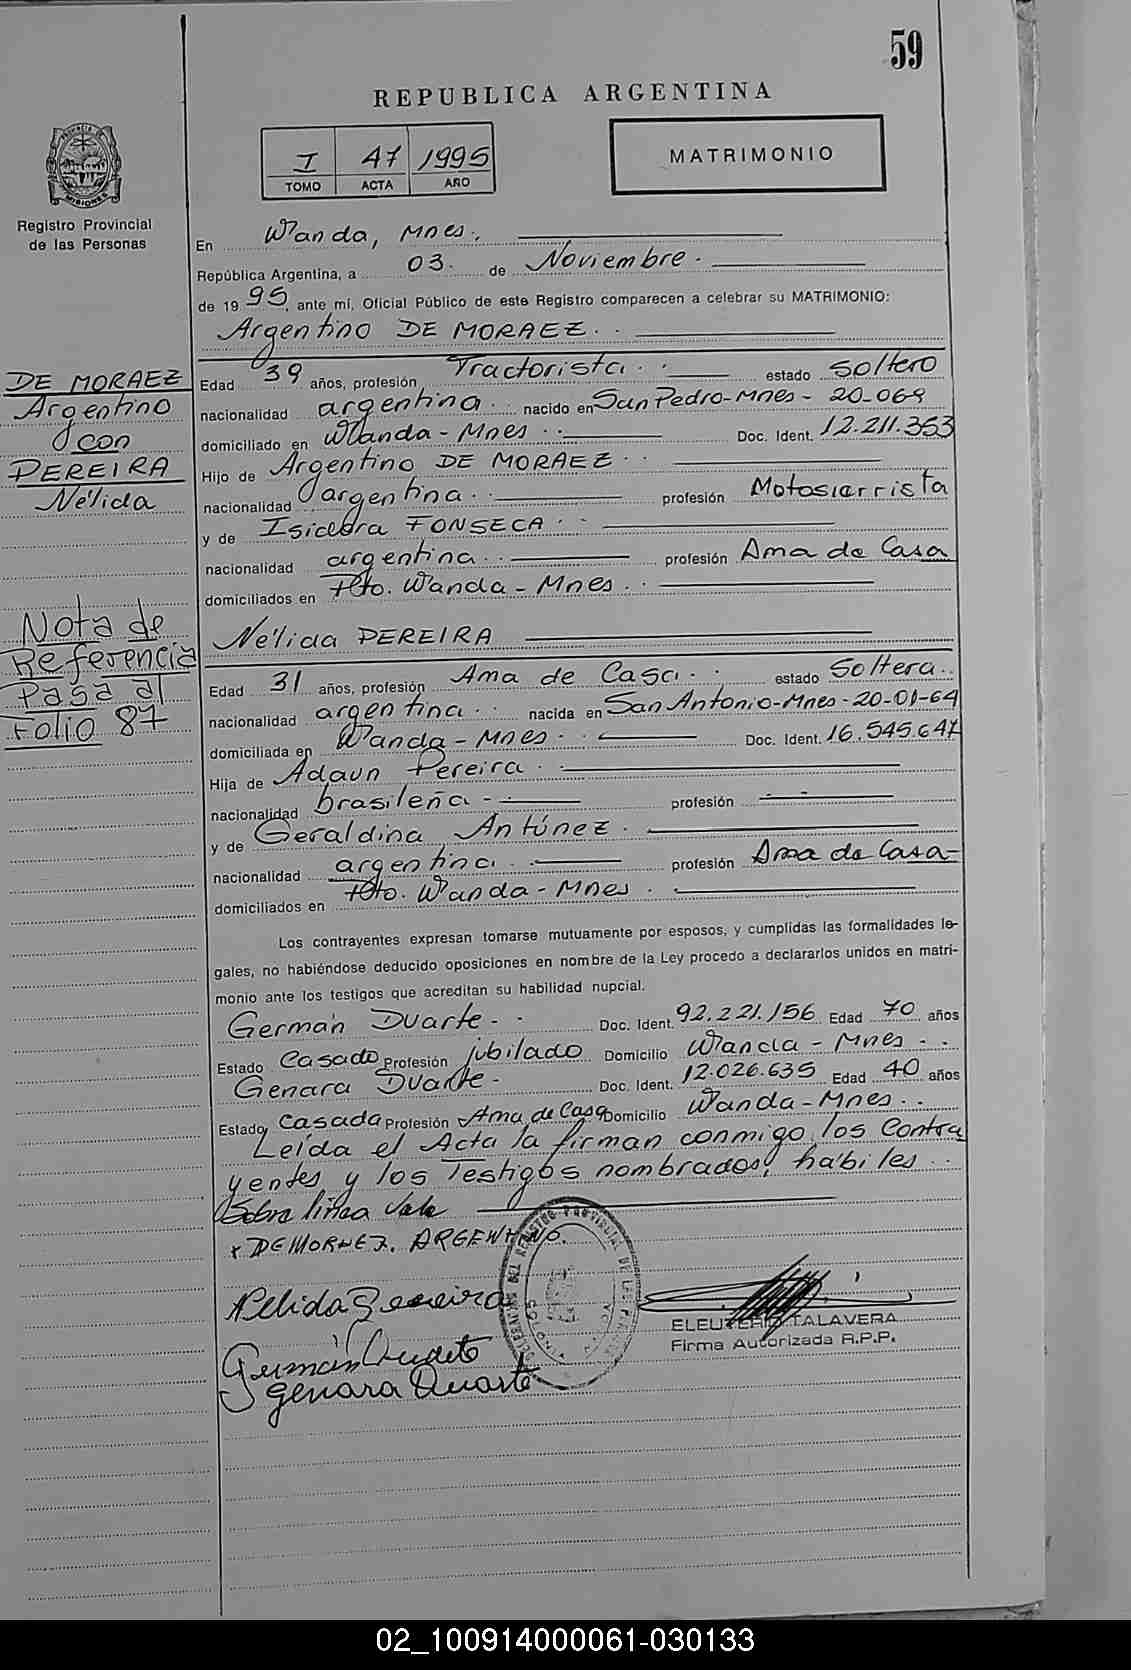 59
REPUBLICA ARGENTINA
I 47 1995
TOMO ACTA AÑO
MATRIMONIO
Registro Provincial
de las Personas
En Wanda, Mnes.
República Argentina, a 03. de Noviembre.
de 19 95, ante mí, Oficial Público de este Registro comparecen a celebrar su MATRIMONIO:
Argentino DE MORAEZ.
DE MORAEZ
Argentino
con
PEREIRA
Nélida
Edad 39 años, profesión Tractorista. estado Soltero
nacionalidad argentina. nacido en San Pedro-Mnes-
domiciliado en Wanda-Mnes. Doc. Ident. 12.211.353
Hijo de Argentino DE MORAEZ.
nacionalidad argentina. profesión Motosierrista
y de Isidora FONSECA.
nacionalidad argentina. profesión Ama de Casa
domiciliados en Pto. Wanda-Mnes.
Nota de
Referencia
Pasa al
Folio 87
Nélida PEREIRA
Edad 31 años, profesión Ama de Casa. estado Soltera.
nacionalidad argentina. nacida en San Antonio-Mnes-20-01-64
domiciliada en Wanda-Mnes. Doc. Ident. 16.545.647
Hija de Adaun Pereira.
nacionalidad brasileña- profesión
y de Geraldina Antúnez.
nacionalidad argentina. profesión Ama de Casa-
domiciliados en Pto. Wanda-Mnes.
Los contrayentes expresan tomarse mutuamente por esposos, y cumplidas las formalidades le-
gales, no habiéndose deducido oposiciones en nombre de la Ley procedo a declararlos unidos en matri-
monio ante los testigos que acreditan su habilidad nupcial.
Germán Duarte- Doc. Ident. 92.221.156 Edad 70 años
Estado Casado Profesión jubilado Domicilio Wanda-Mnes.
Genara Duarte- Doc. Ident. 12.026.635 Edad 40 años
Estado Casada Profesión Ama de Casa Domicilio Wanda-Mnes.
Leída el Acta la firman conmigo, los Contra
yentes y los Testigos nombrados, hábiles
Sobre línea Vale
Nelida Pereira
ELEUTERIO TALAVERA
Firma Autorizada R.P.P.
Germán Duarte
Genara Duarte
02_100914000061-030133